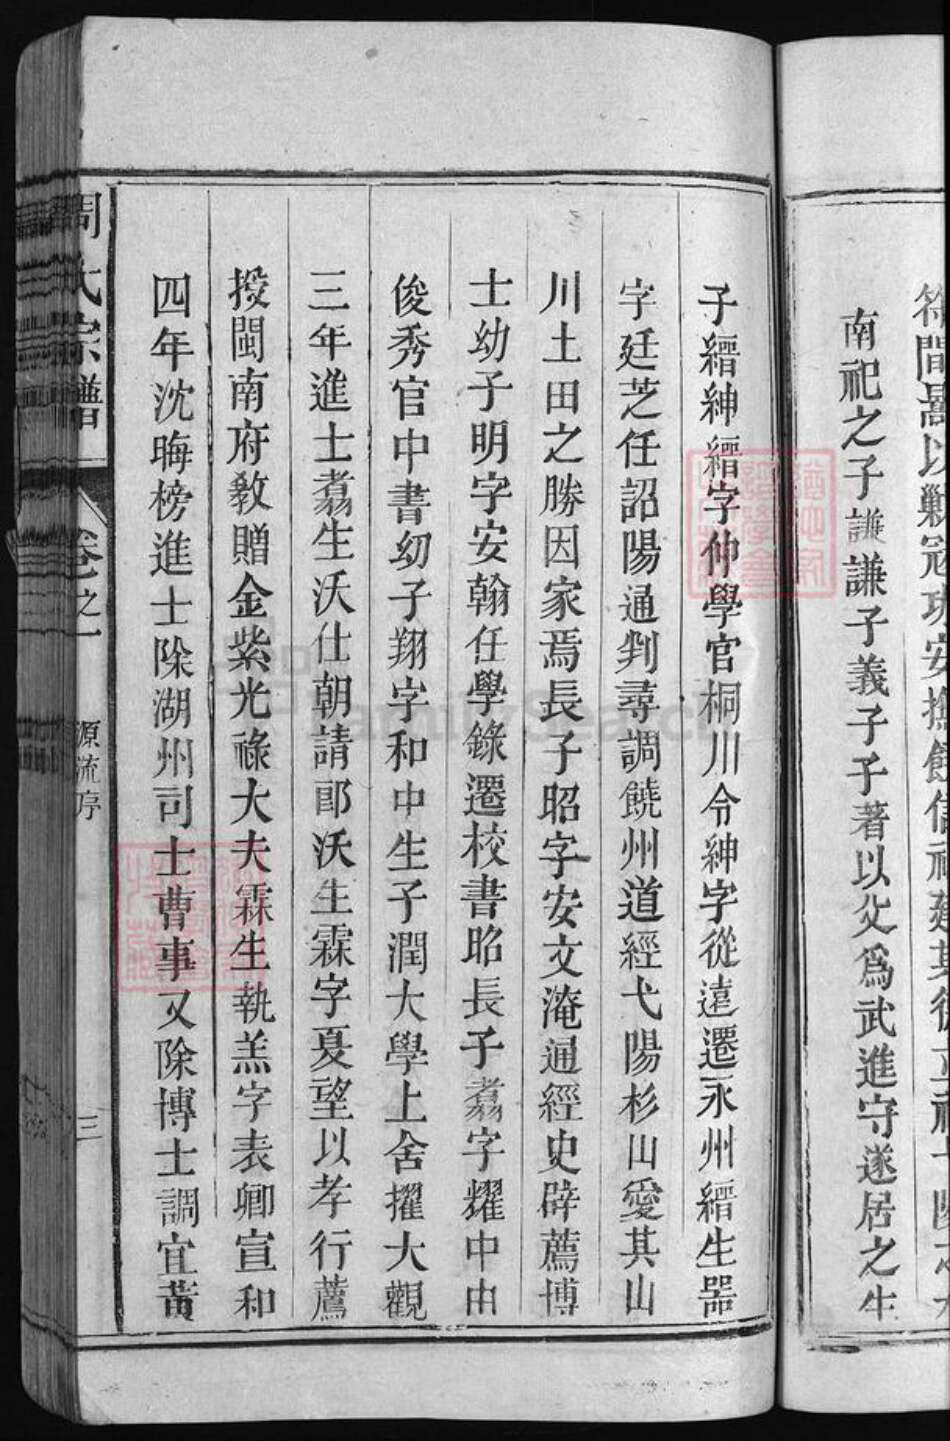 南祀之子謙謙子義子子著以父爲武進守遂居之生
子縉紳縉字仲學官桐川令紳字從遠遷永州縉生噐
字廷芝任詔陽通判尋調饒州道經弋陽杉山愛其山
川土田之勝因家焉長子昭字安文淹通經史辟薦博
士幼子明字安翰任學錄遷校書昭長子翥字耀中由
俊秀官中書幼子翔字和中生子潤大學上舍擢大觀
三年進士翥生沃仕朝請郎沃生霖字夏望以孝行薦
授閩南府教贈金紫光祿大夫霖生執羔字表卿宣和
四年沈晦榜進士除湖州司士曹事又除博士調宜黃
周氏宗譜
卷之一
源流序
三
FamilySearch